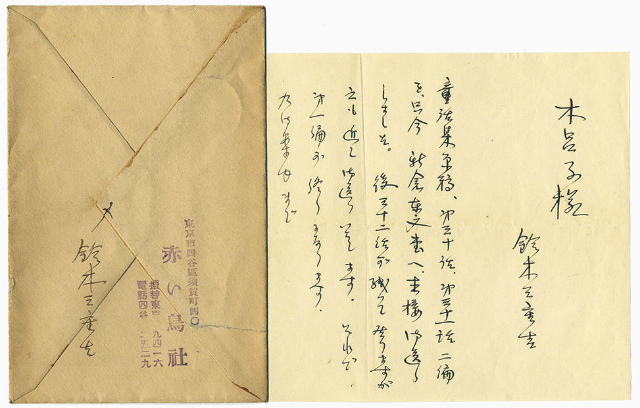 木呂子様
鈴木三重吉
童話集原稿、第三十話、第三十一話 二編
を、只今 新倉東文堂へ、直接 御送り
しました。後 三十二話が残って居りますが
これも 近く 御送り します。これで、
第一編が 終りと なります。
右御案内まで
〆
鈴木三重吉
東京市四谷區須賀町四〇
赤い鳥社
振替東京 九四一六
電話四谷 二九